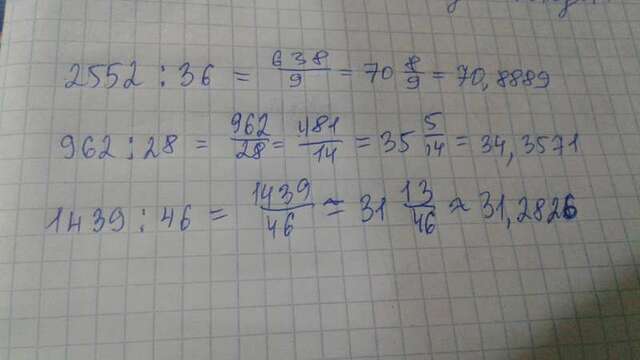 2552 : 36 = 638/9 = 70 8/9 = 70,8889
962 : 28 = 962/28 = 481/14 = 35 5/14 = 34,3571
1439 : 46 = 1439/46 ≈ 31 13/46 ≈ 31,2826